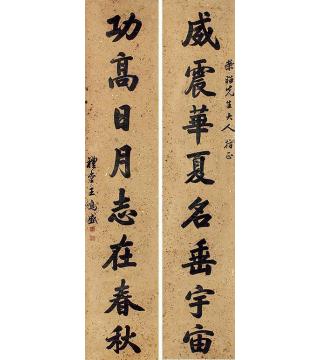 威震華夏名垂宇宙
榮照先生大人指正
功高日月志在春秋
禮堂王鳴盛